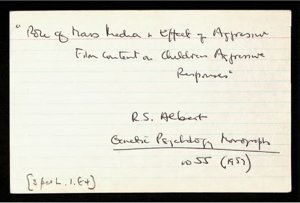 "Role of Mass Media & Effect of Aggressive
Film Content on Children's Aggressive
Responses"
R.S. Albert
Genetic Psychology Monographs
55 (1957)